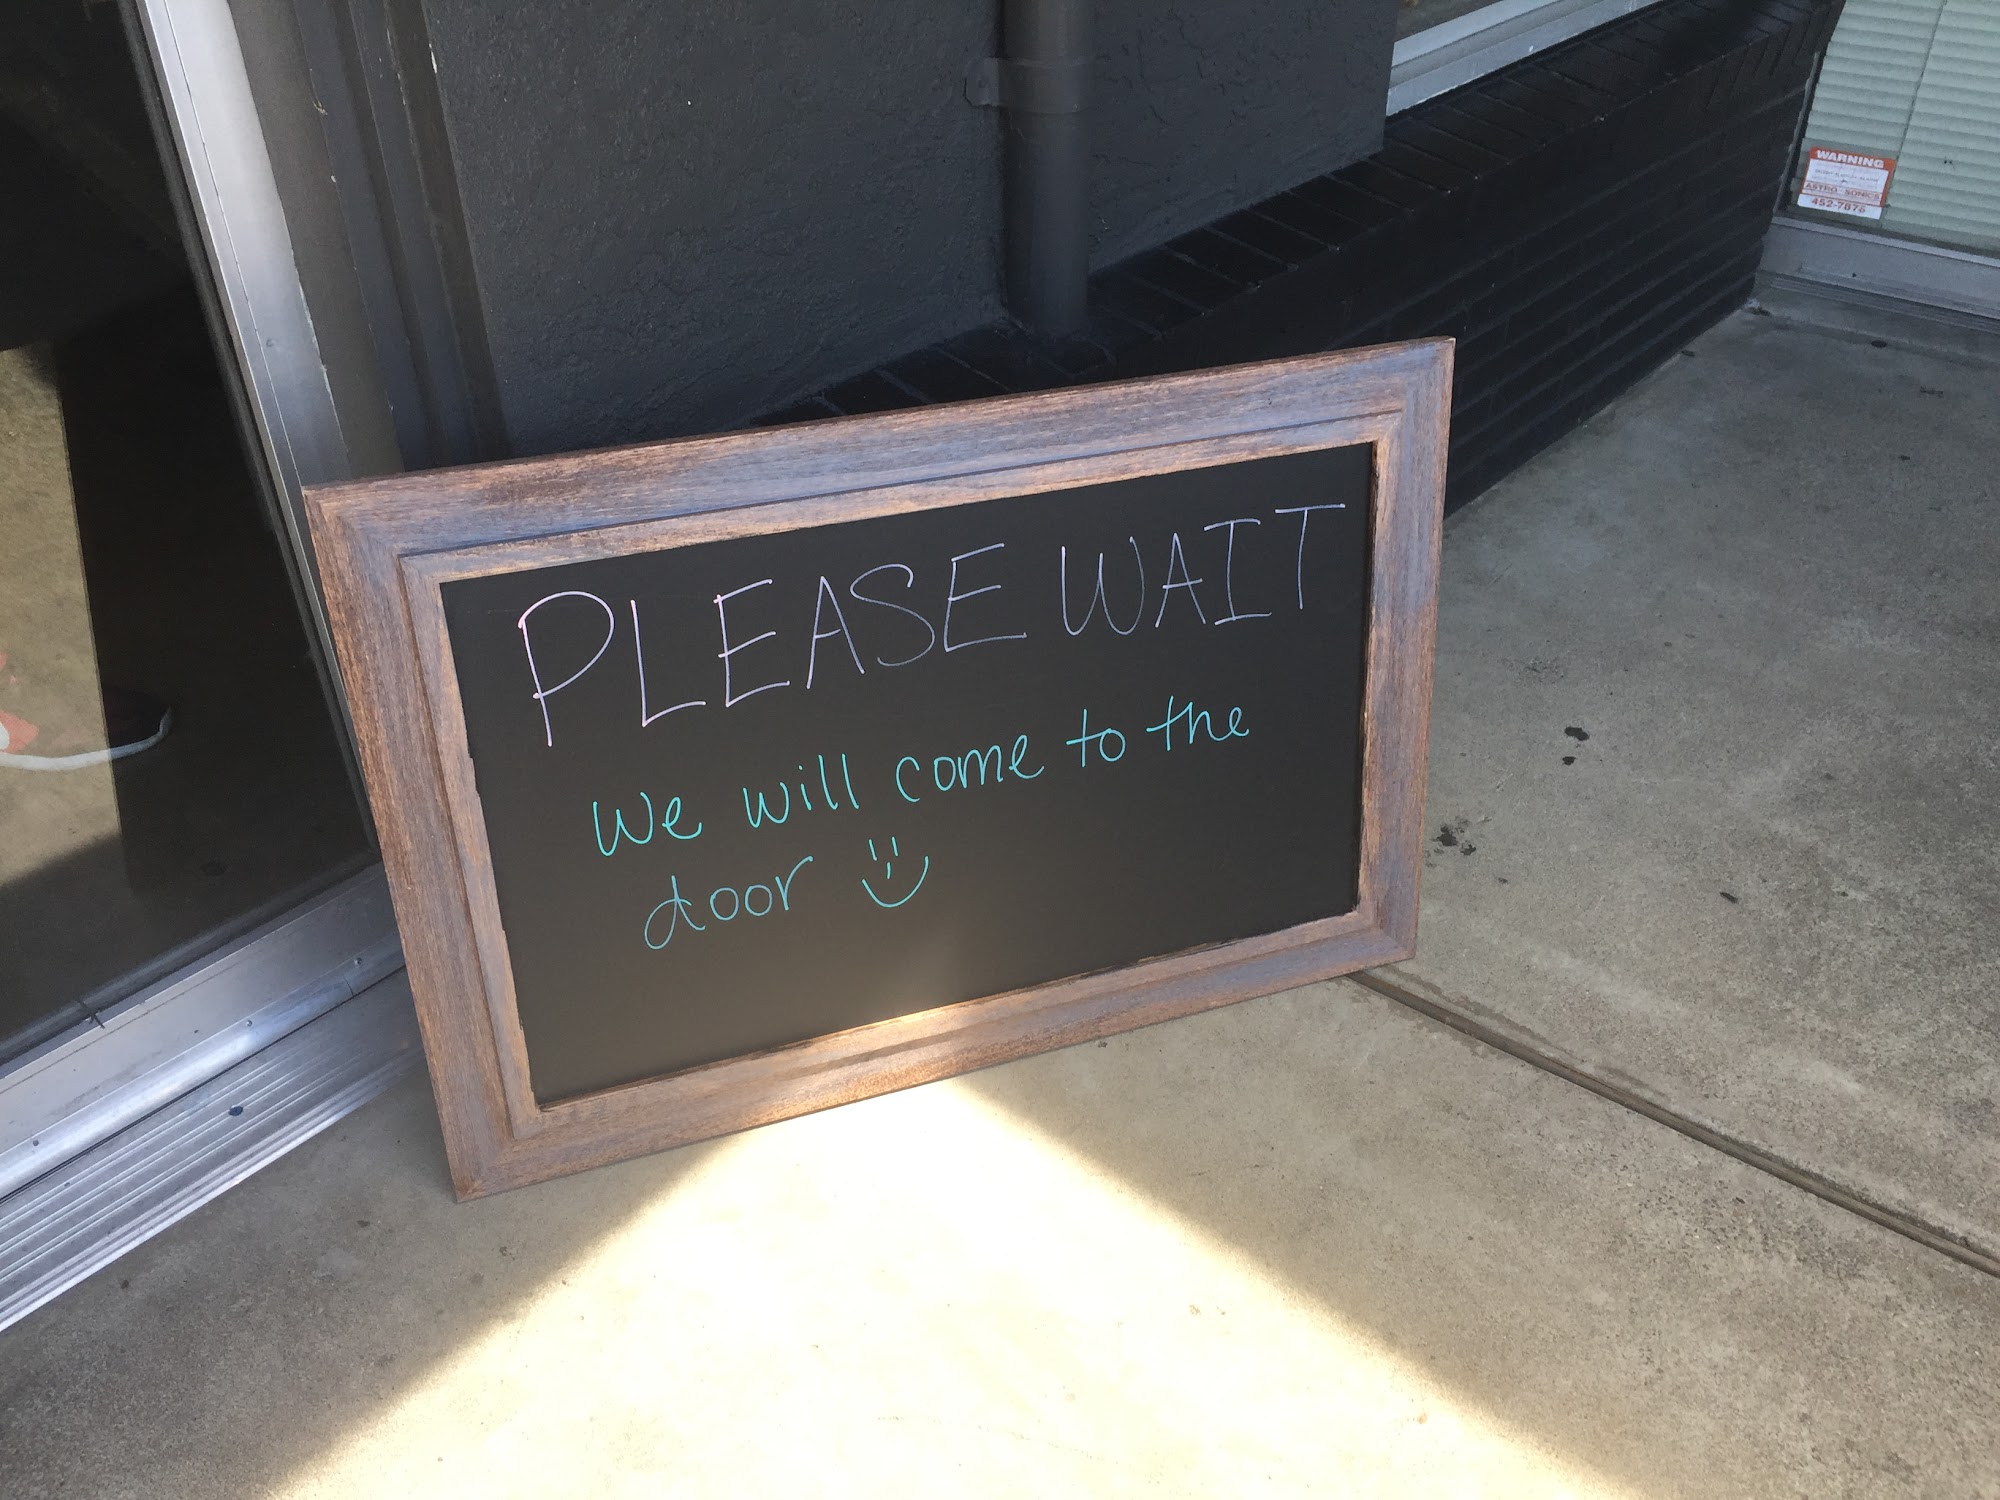 PLEASE WAIT
we will come to the
door :)
WARNING
ASTRO SONICS
452-7876